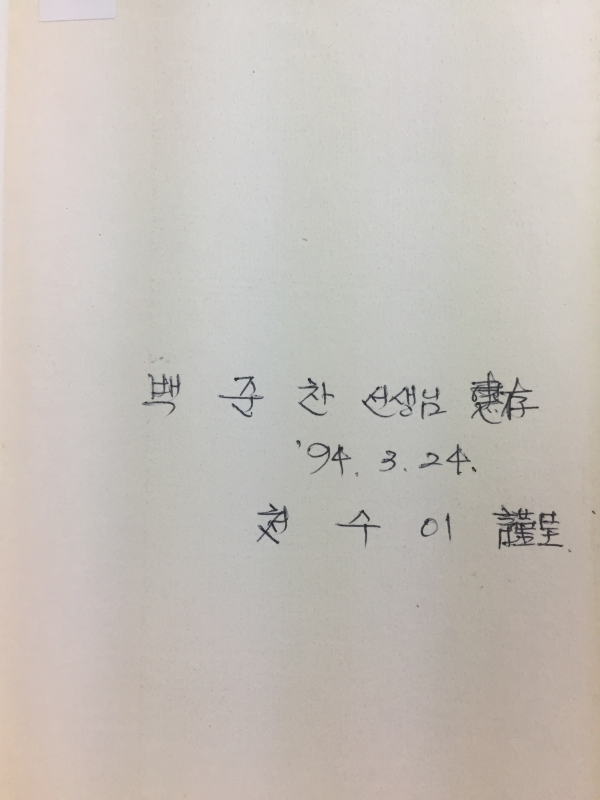 백 준 찬 선생님 惠存
'94. 3. 24.
천 수 이 謹呈.